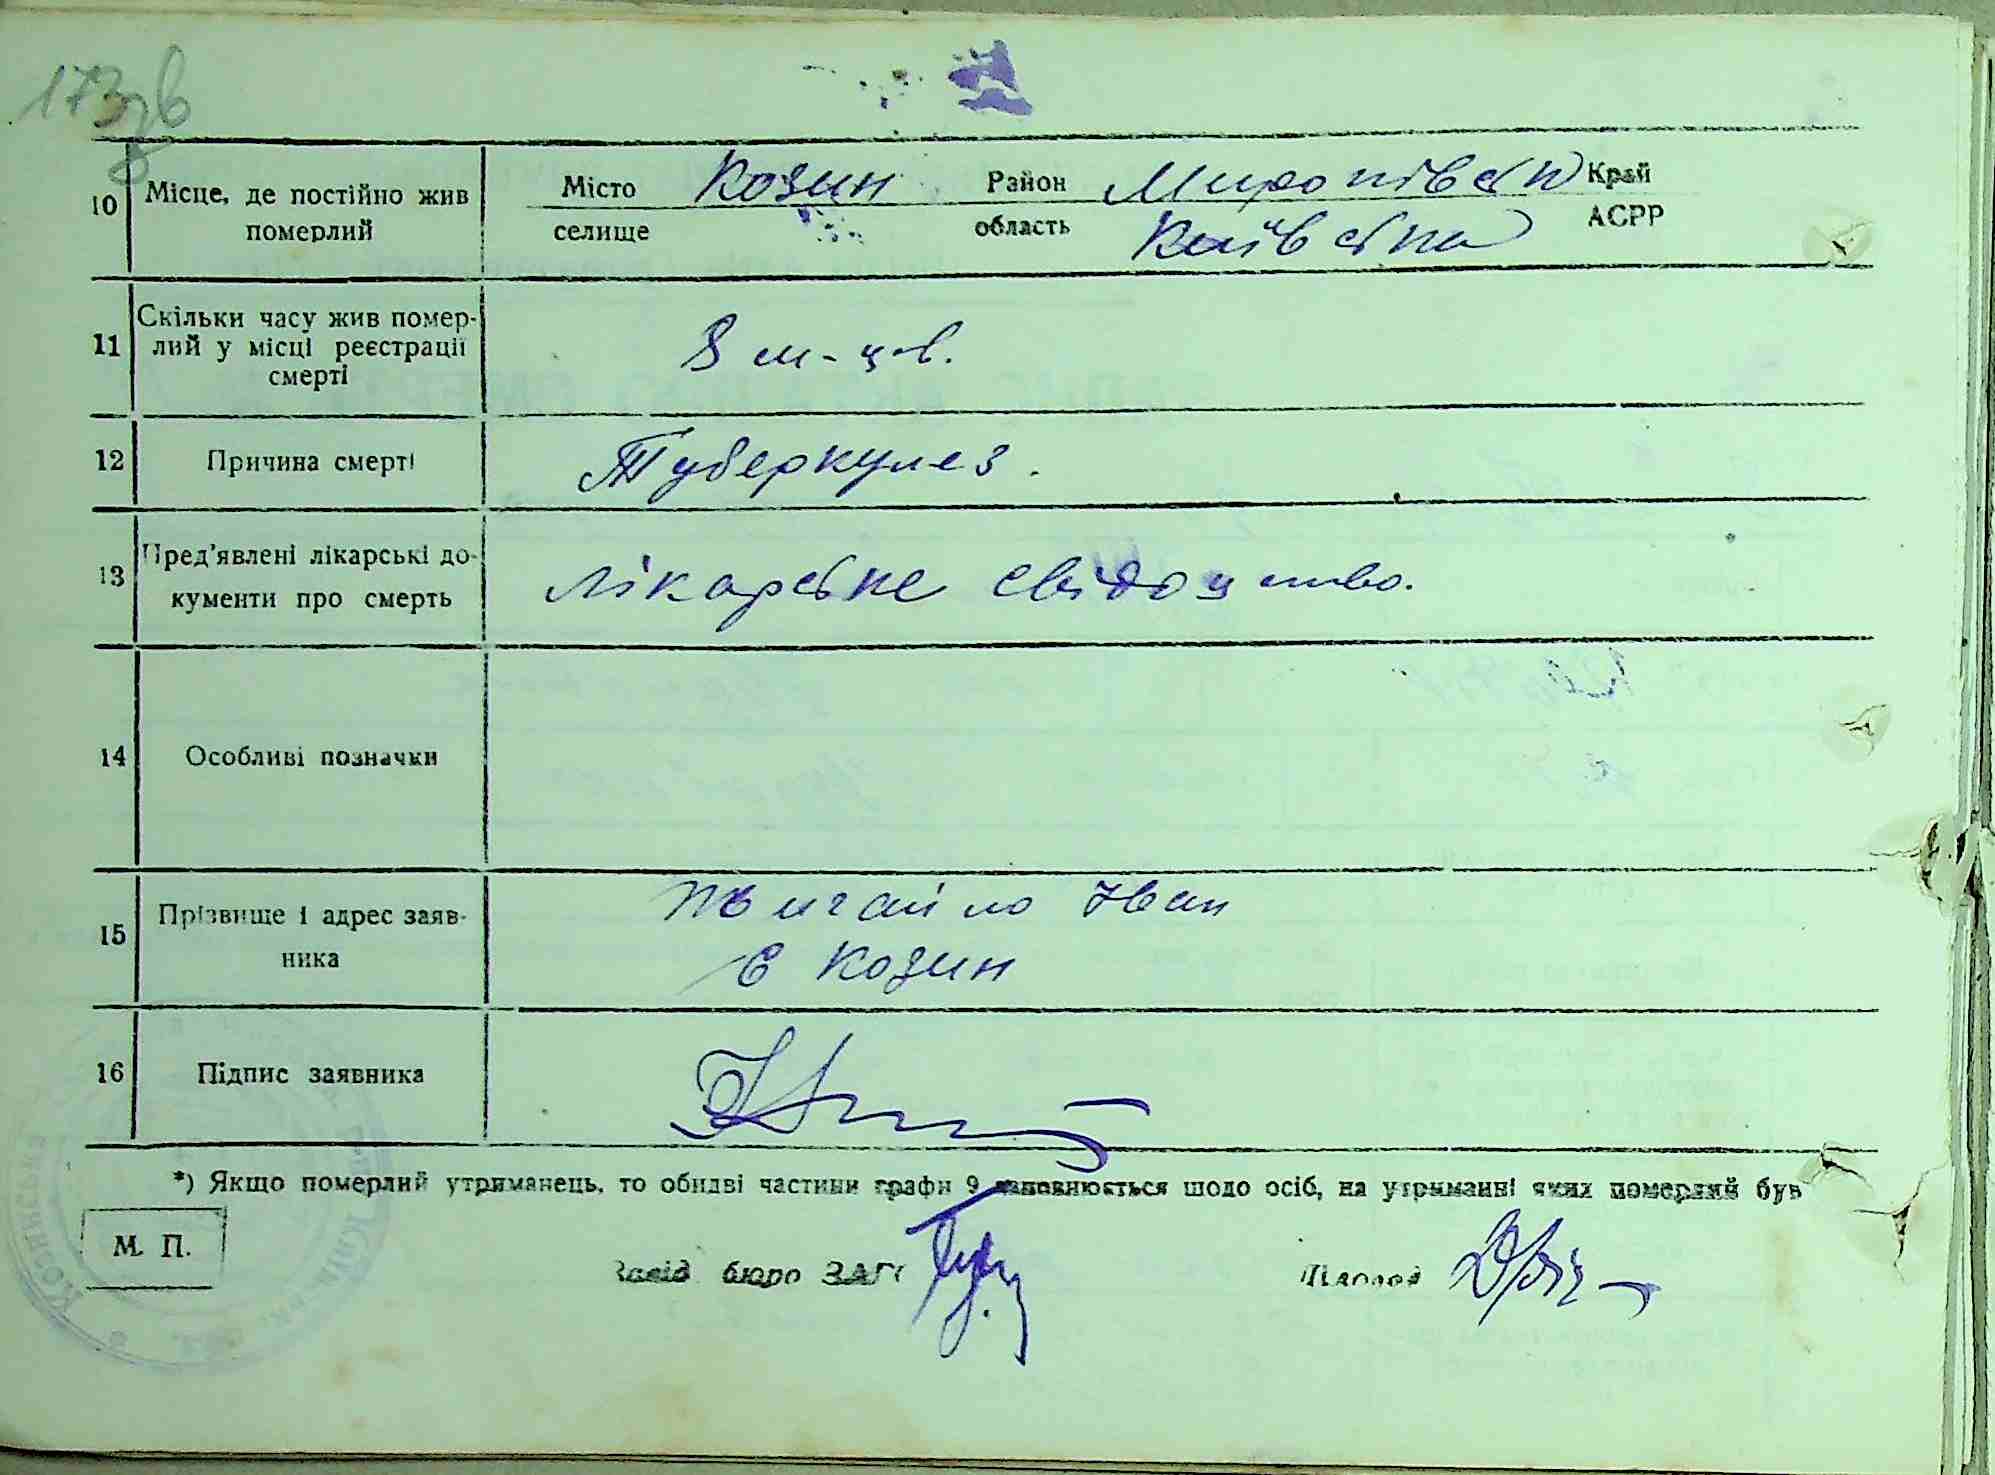 173зв
10 Місце, де постійно жив померлий Місто селище Козин Район область Миропівськ Київська Край АСРР
11 Скільки часу жив помер-
лий у місці реєстрації
смерті
8 м-ців.
12 Причина смерті Туберкулез.
13 Пред'явлені лікарські до-
кументи про смерть
Лікарське свідоцтво.
14 Особливі позначки
15 Прізвище і адрес заяв-
ника
Іван
с Козин
16 Підпис заявника
*) Якщо померлий утриманець, то обидві частини графи 9 заповнюється щодо осіб, на утриманні яких померлий був
М. П.
Завід бюро ЗАГС
Козинська